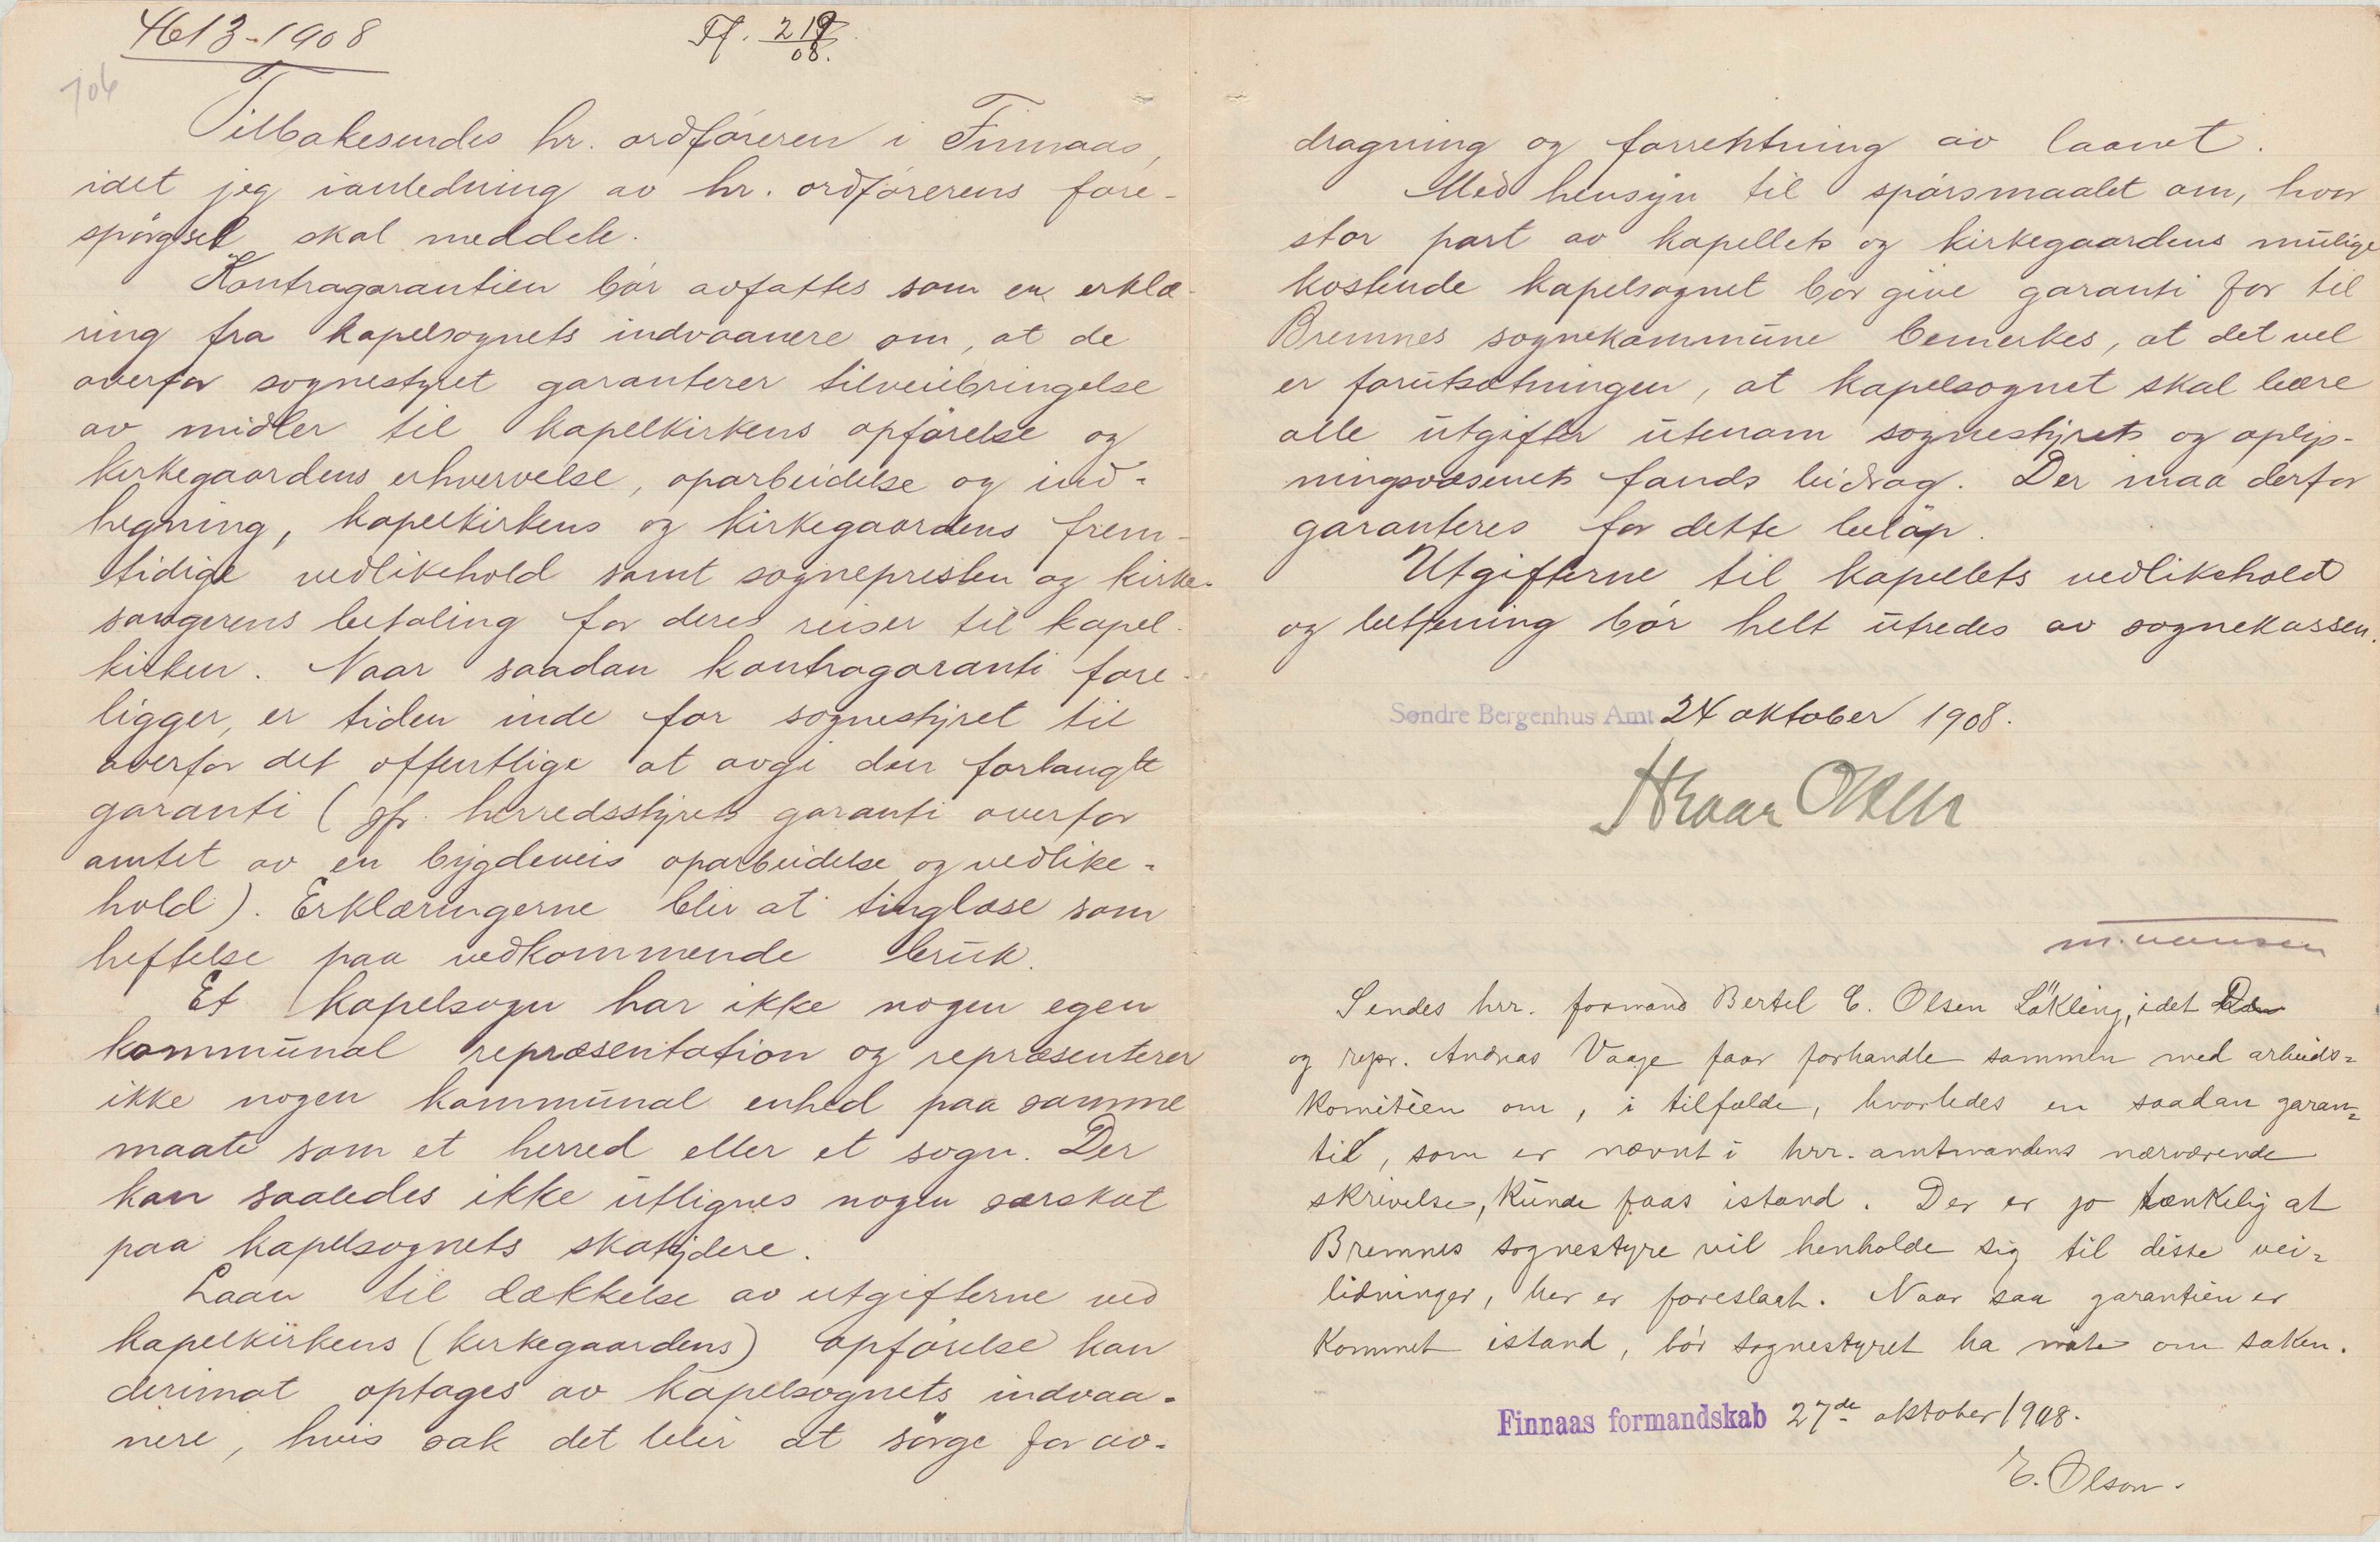 4613-1908
Ff. 219/08.
106
Tilbakesendes hr. ordføreren i Finnaas,
idet jeg ianledning av hr. ordførerens fore-
spørgsel skal meddele.
Kontragarantien bør avfattes som en erklæ-
ring fra kapelsognets indvaanere om, at de
overfor sognestyret garanterer tilveiebringelse
av midler til kapelkirkens opførelse og
kirkegaardens erhvervelse, oparbeidelse og ind-
hegning, kapelkirkens og kirkegaardens frem-
tidige vedlikehold samt sognepresten og kirke-
sangerens betaling for deres reiser til kapel-
kirken. Naar saadan kontragaranti fore-
ligger, er tiden inde for sognestyret til
overfor det offentlige at avgi den forlangte
garanti (jfr. herredsstyrets garanti overfor
amtet av en bygdeveis oparbeidelse og vedlike-
hold). Erklæringerne blir at tinglæse som
heftelse paa vedkommende bruk.
Et kapelsogn har ikke nogen egen
kommunal repræsentation og repræsenterer
ikke nogen kommunal enhed paa samme
maate som et herred eller et sogn. Der
kan saaledes ikke utlignes nogen særskat
paa kapelsognets skatydere.
Laan til dækkelse av utgifterne ved
kapelkirkens (kirkegaardens) opførelse kan
derimot optages av kapelsognets indvaa-
nere, hvis sak det blir at sørge for av-
dragning og forrentning av laanet.
Med hensyn til spørsmaalet om, hvor
stor part av kapellets og kirkegaardens mulige
kostende kapelsognet bør give garanti for til
Bremnes sognekommune bemerkes, at det vel
er forutsætningen, at kapelsognet skal bære
alle utgifter utenom sognestyrets og oplys-
ningsvæsenets fonds bidrag. Der maa derfor
garanteres for dette beløp.
Utgifterne til kapellets vedlikehold
og betjening bør helt utredes av sognekassen.
Søndre Bergenhus Amt 24 oktober 1908.
Hroar Olsen
Sendes hrr. formand Bertel E. Olsen Løkling, idet De
og repr. Andreas Vaage faar forhandle sammen med arbeids-
komitéen om, i tilfælde, hvorledes en saadan garan-
ti, som er nævnt i hrr. amtmandens nærværende
skrivelse, kunde faas istand. Der er jo tænkelig at
Bremnes sognestyre vil henholde sig til disse vei-
ledninger, her er foreslaat. Naar saa garantien er
kommet istand, bør sognestyret ha møte om saken.
Finnaas formandskab 27de oktober 1908.
E. Olson.